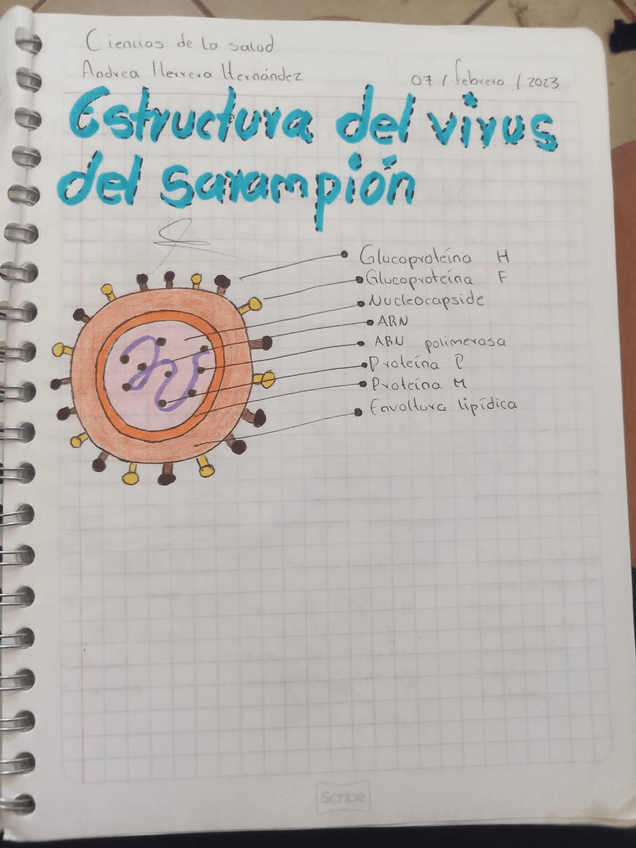 Ciencias de la salud
Andrea Herrera Hernández
07 / febrero / 2023
Estructura del virus
del sarampión
Glucoproteína H
Glucoproteína F
Nucleocapside
ARN
ARN polimerasa
Proteína P
Proteína M
Envoltura lipídica
Scribe